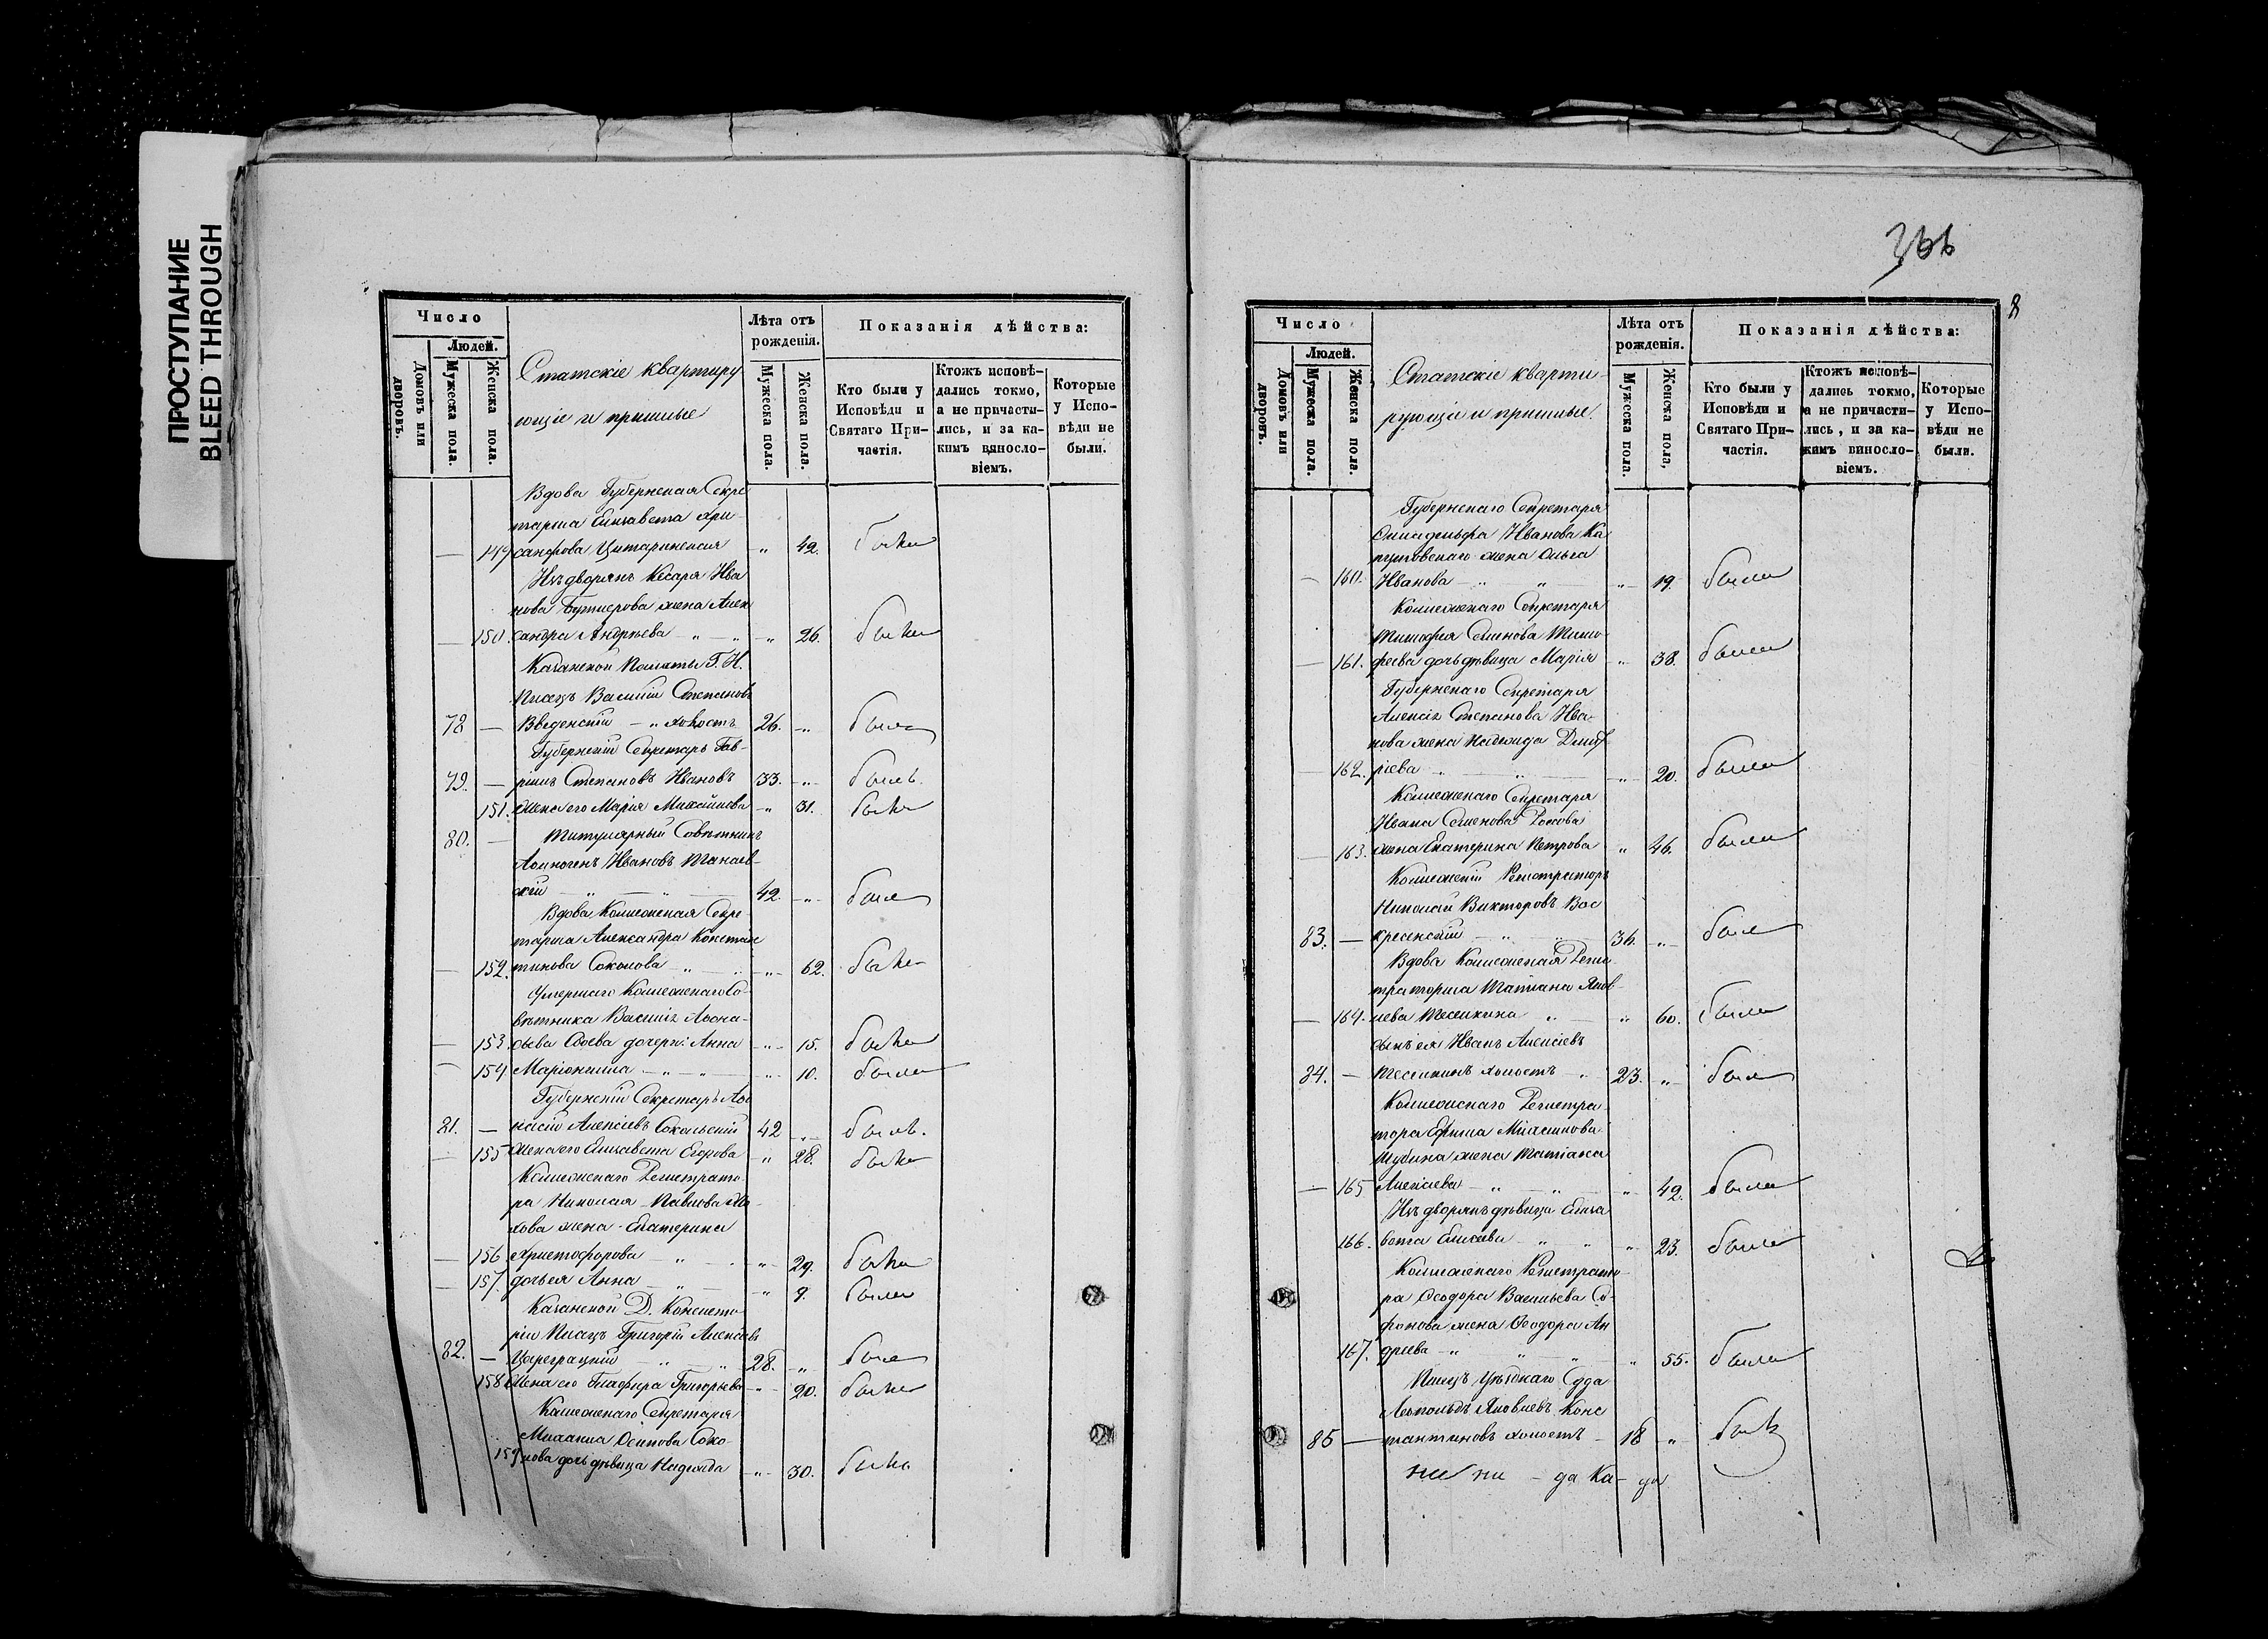 ПРОСТУПАНИЕ
BLEED THROUGH
Число
Людей.
Домовъ или дворовъ.
Мужеска пола.
Женска пола.
Статскіе квартиру
ющіе и пришлые
Лѣта отъ
рожденія.
Мужеска пола.
Женска пола.
Показанія дѣйства:
Кто были у
Исповѣди и
Святаго При-
частія.
Ктожъ исповѣ-
дались токмо,
а не причасти-
лись, и за ка-
кимъ винослo-
віемъ.
Которые
у Испо-
вѣди не
были.
Вдова Губернская Секре
тарша Елисавета
149 42. была
Изъ дворянъ Кесаря Ива
нова Бутлерова жена Алек
— 150. сандра Андреева — „ — „ — „ 26. была
Казанской Палаты Г. И.
Писецъ Василій Степановъ
78 — Введенскій — „ холостъ 26. — „ былъ
Губернскій Секретарь Гав-
79. — ріилъ Степановъ Ивановъ 33. — „ — былъ.
151. жена его Марія Михайлова „ 31. была
80. — Титулярный Совѣтникъ
Ивановъ Танаев-
скій — „ — „ — 42. — „ — былъ
Вдова Коллежская Секре
тарша Александра Констан
— 152. тинова Соколова — „ — „ — 62. была
Умершаго Коллежскаго Со-
вѣтника Василія Аѳона-
— 153. сьева дочери: Анна — „ — 15. была
— 154. — „ — „ — „ 10. была
Губернскій Секретарь Аѳо
81. — насій Алексіевъ Сокольскій 42 — „ — былъ.
— 155 жена его Елисавета Егорова — „ 28. была
Коллежскаго Регистрато
ра Николая Павлова
хова жена Екатерина
— 156 Христофорова — „ — „ — 29. была
— 157. дочь ея Анна — „ — „ 9. была
Казанской Д. Консисто
ріи Писецъ Григорій Алексѣевъ
82. — Цареградскій — „ — „ 28. „ былъ
158 Жена его Глафира Григорьева — „ — 20. была
Коллежскаго Секретаря
Михаила Осипова Соко-
159 лова дочь дѣвица Надежда — „ — 30. была
366
8
Число
Людей.
Домовъ или дворовъ.
Мужеска пола.
Женска пола.
Статскіе кварти-
рующіе и пришлые.
Лѣта отъ
рожденія.
Мужеска пола.
Женска пола,
Показанія дѣйства:
Кто были у
Исповѣди и
Святаго При-
частія.
Ктожъ исповѣ-
дались токмо,
а не причасти-
лись, и за ка-
кимъ винослo-
віемъ.
Которые
у Испо-
вѣди не
были.
Губернскаго Секретаря
Иванова Ка
жена Ольга
— 160. Иванова — „ — „ — „ — 19. была
Коллежскаго Секретаря
Тимофея Семенова Тимо-
— 161. феева дочь дѣвица Марія — „ — 38. была
Губернскаго Секретаря
Алексія Степанова Ива-
нова жена Надежда Дмит
— 162. ріева — „ — „ — „ — 20. была
Коллежскаго Секретаря
Ивана Семенова
— 163. жена Екатерина Петрова „ 46. была
Коллежскій Регистраторъ
Николай Викторовъ Вос
83. — кресенскій — „ — „ — 36. „ — былъ
Вдова Коллежская Реги
страторша Татіана Яков-
— 164. лева „ — „ 60. была
сынъ ея Иванъ Алексіевъ
84. — холостъ — „ 23. „ — былъ
Коллежскаго Регистра-
тора Ефима Михаилова
Шубина жена Татіана
— 165 Алексіева — „ — „ — „ — 42. была
Изъ дворянъ дѣвица Елиса
166. вета — „ — „ — 23. была
Коллежскаго Регистрато-
ра Ѳеодора Васильева Со-
фонова жена Ѳеодора Ан
167. дреева — „ — „ — „ 55. была
Писецъ Уѣзднаго Суда
Леопольдъ Яковлевъ Конс
85 — тантиновъ холостъ 18 — „ — былъ